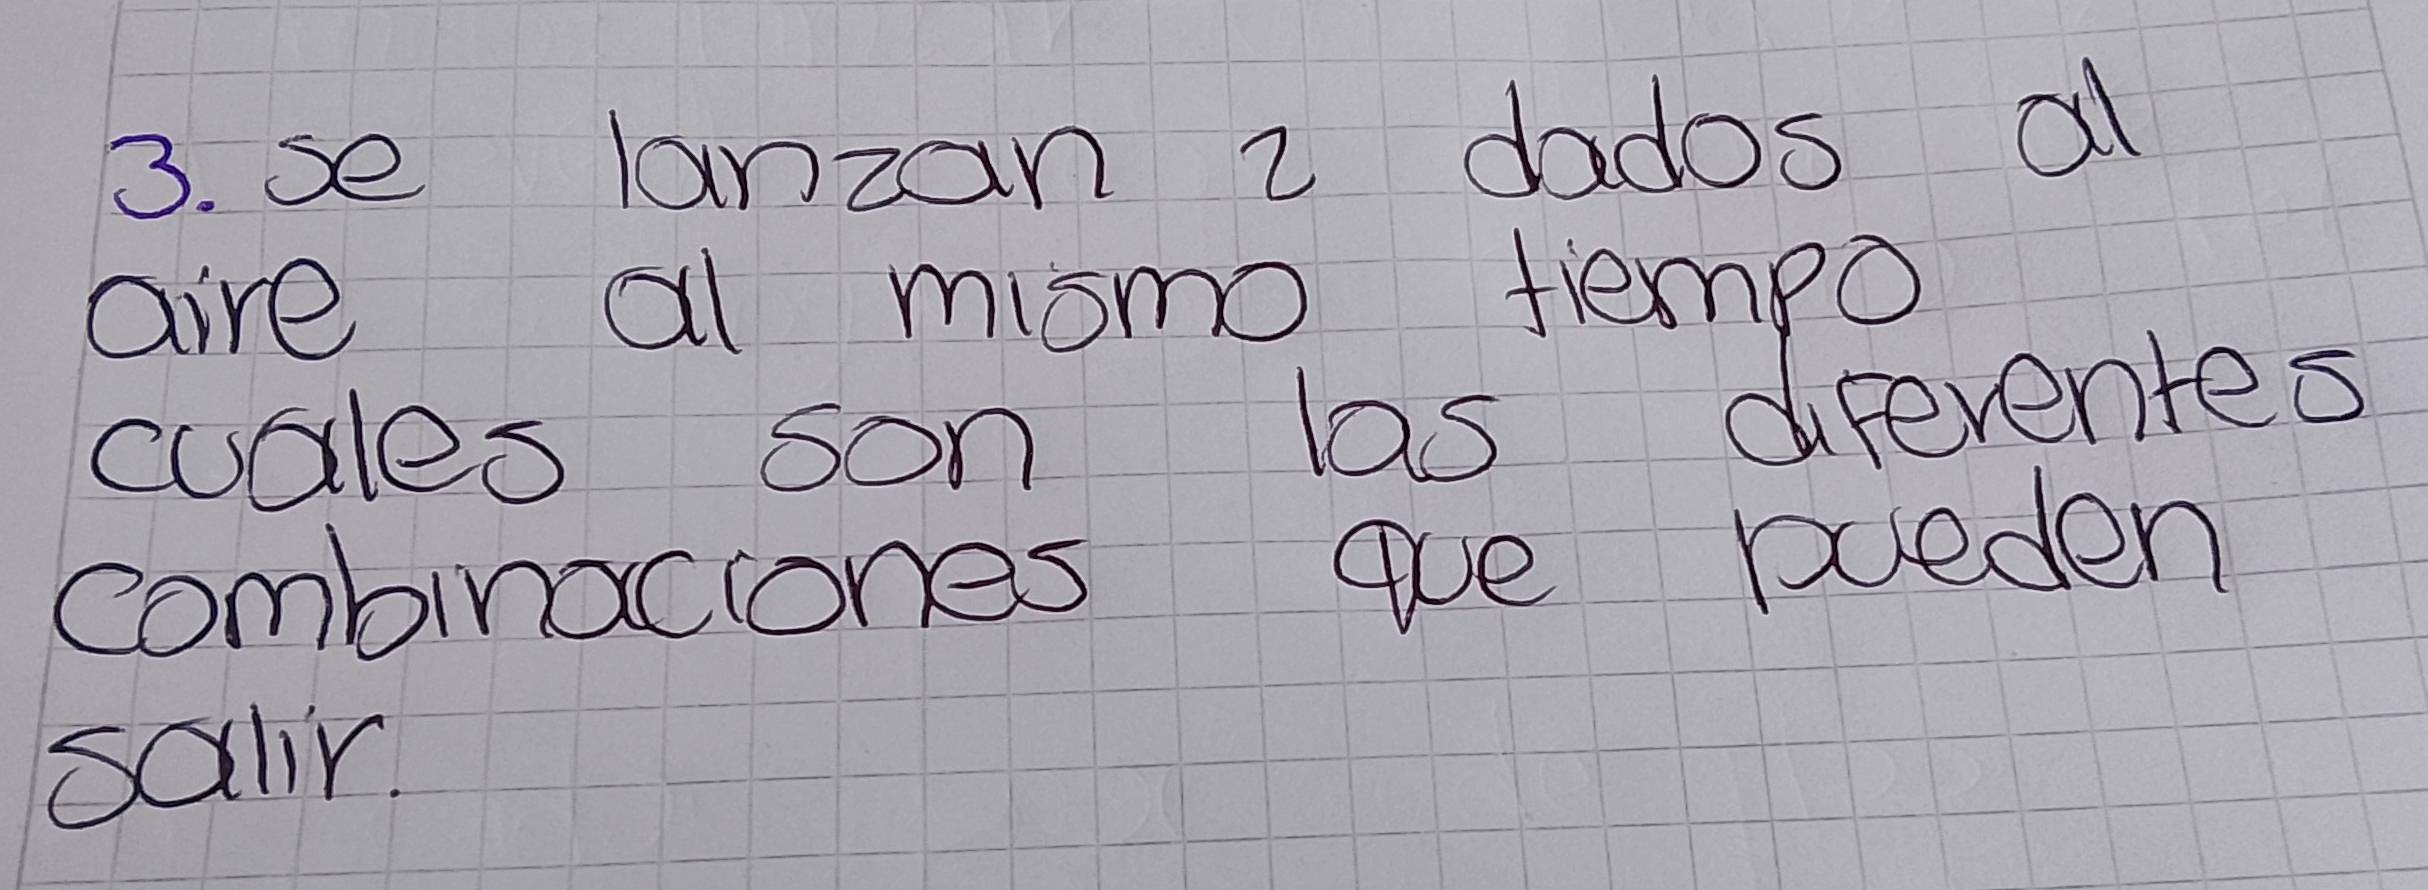 3. se lanzan 2 dados al
aire al mismo tiempo
cuales son las diferentes
combinaciones que pueden
salir.